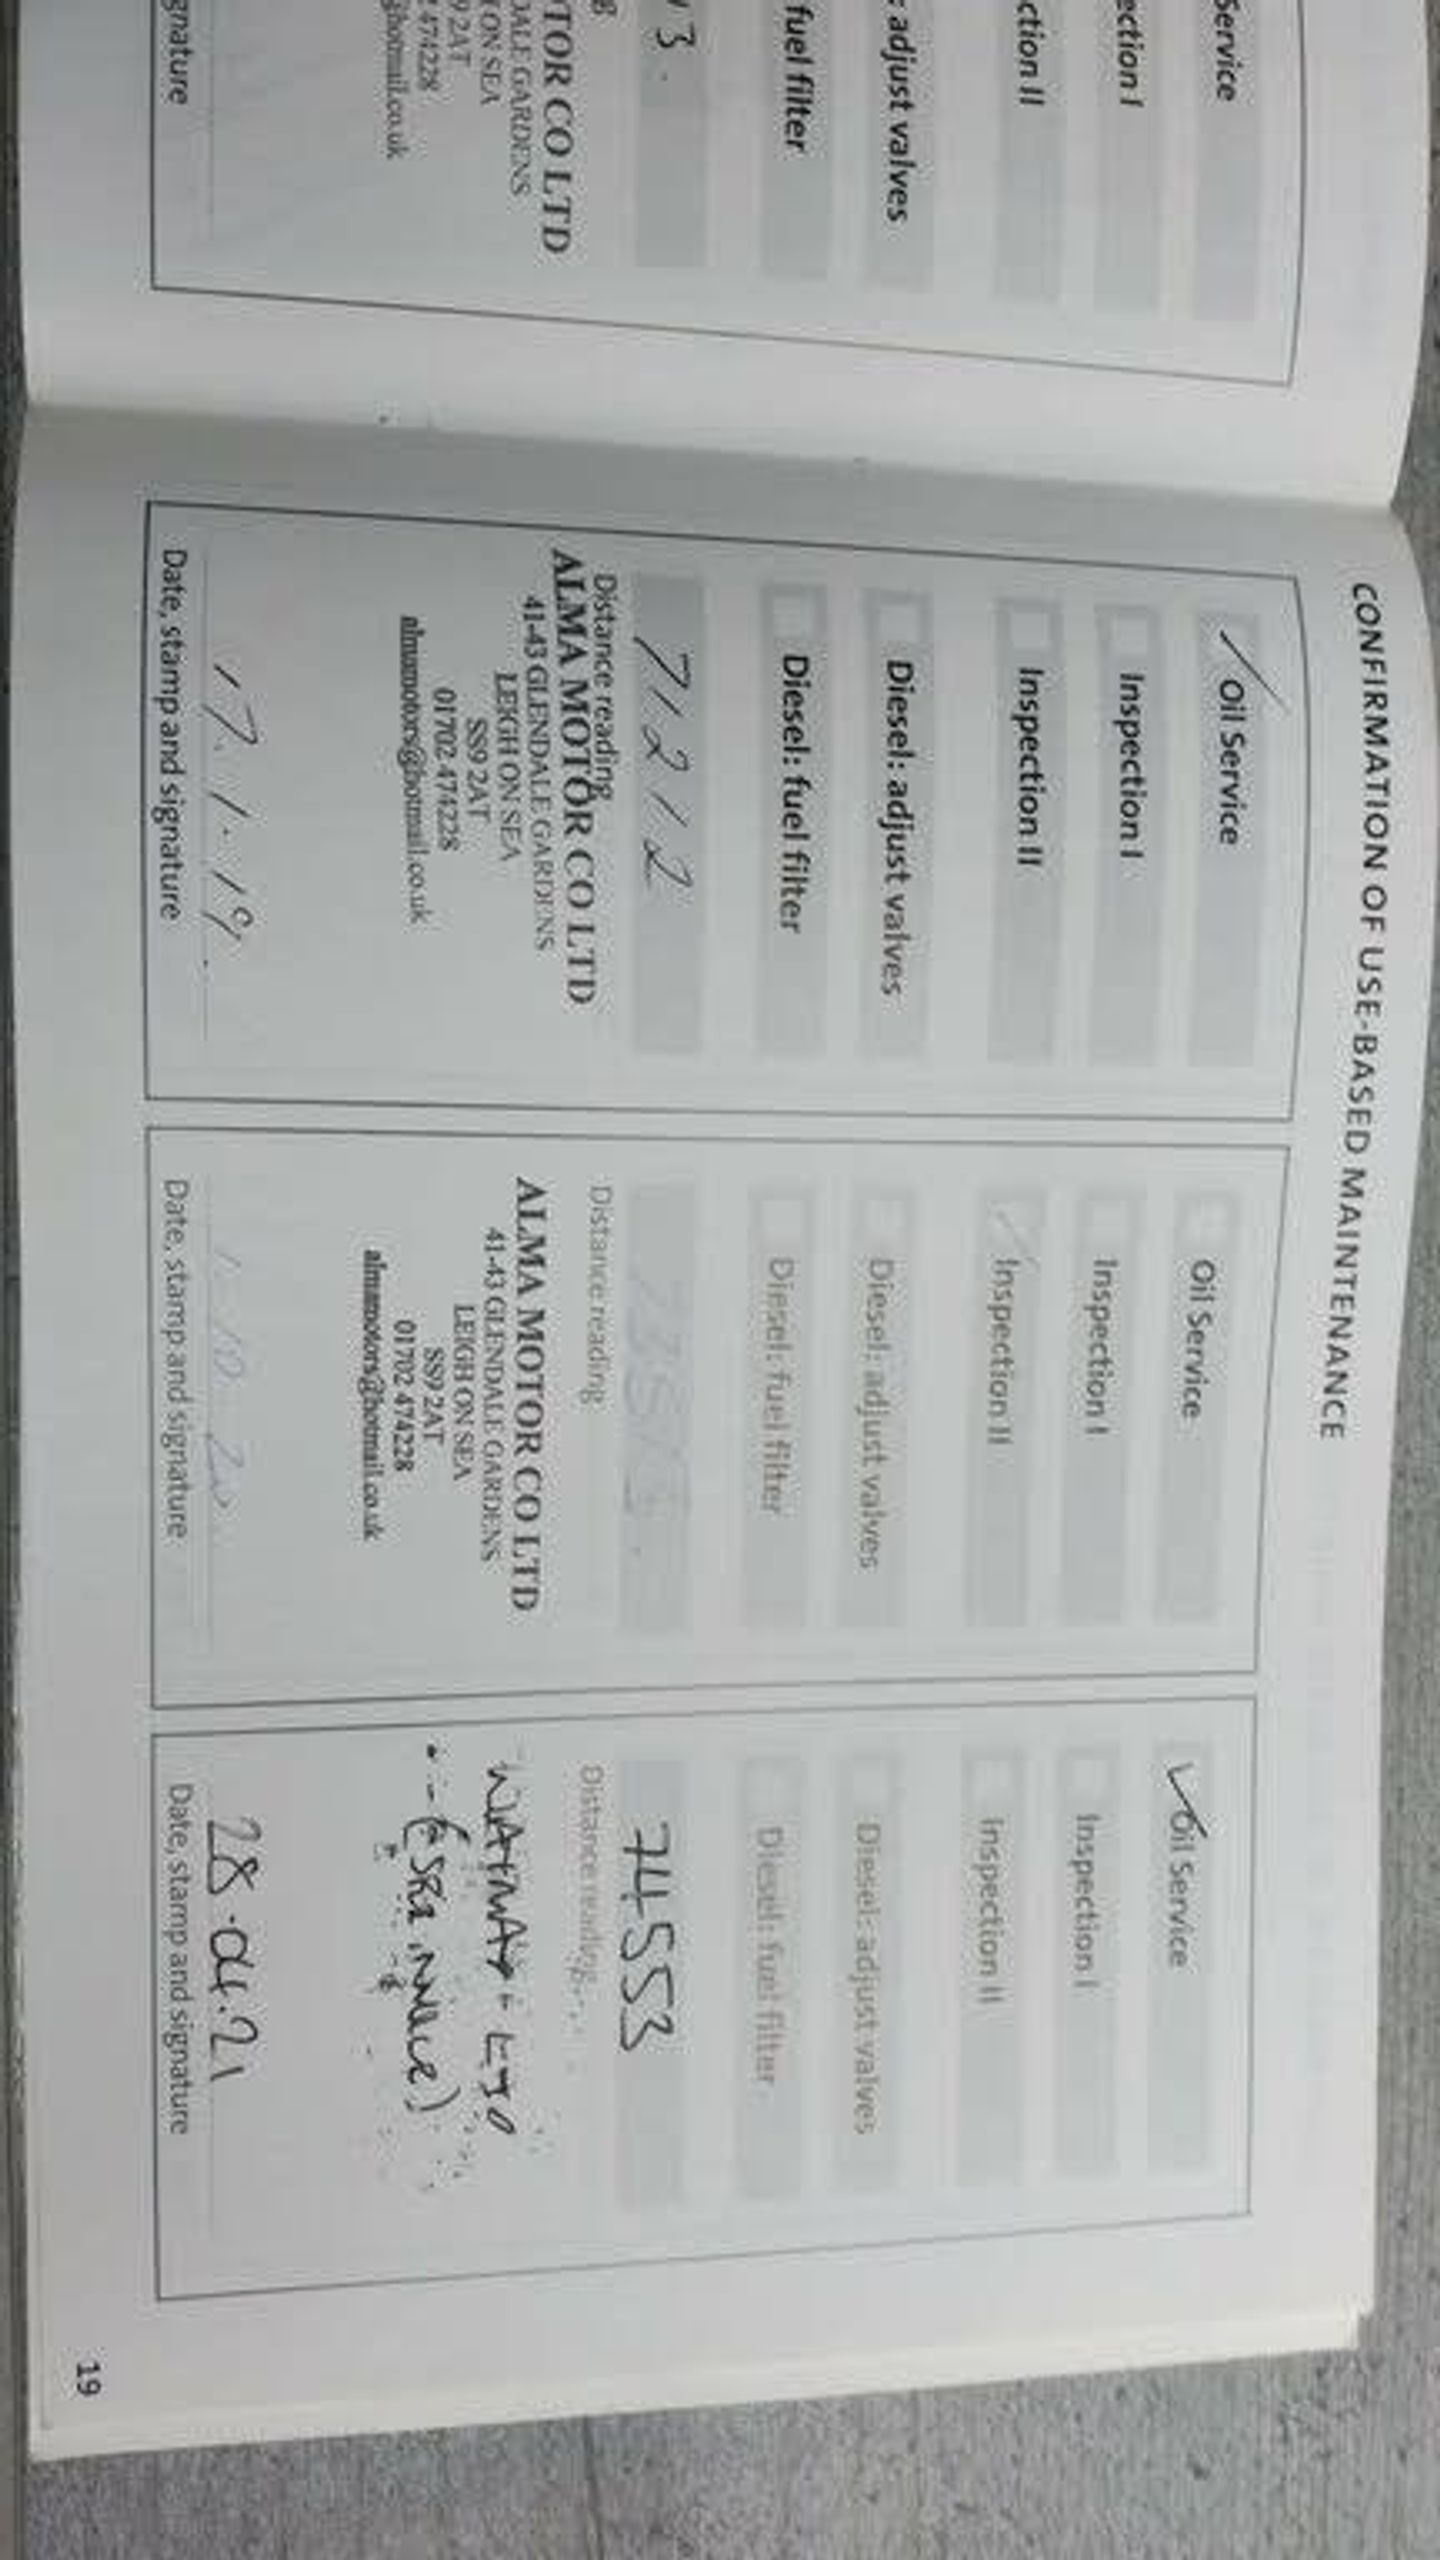 Service
ection I
ction II
: adjust valves
fuel filter
3.
g
TOR CO LTD
DALE GARDENS
ON SEA
9 2AT
474228
@hotmail.co.uk
gnature
CONFIRMATION OF USE-BASED MAINTENANCE
Oil Service
Inspection I
Inspection II
Diesel: adjust valves
Diesel: fuel filter
71212
Distance reading
ALMA MOTOR CO LTD
41-43 GLENDALE GARDENS
LEIGH ON SEA
SS9 2AT
01702 474228
almamotors@hotmail.co.uk
17.1.19.
Date, stamp and signature
Oil Service
Inspection I
Inspection II
Diesel: adjust valves
Diesel: fuel filter
Distance reading
ALMA MOTOR CO LTD
41-43 GLENDALE GARDENS
LEIGH ON SEA
SS9 2AT
01702 474228
almamotors@hotmail.co.uk
1.10.20
Date, stamp and signature
Oil Service
Inspection I
Inspection II
Diesel: adjust valves
Diesel: fuel filter
74553
Distance reading
28.04.21
Date, stamp and signature
19